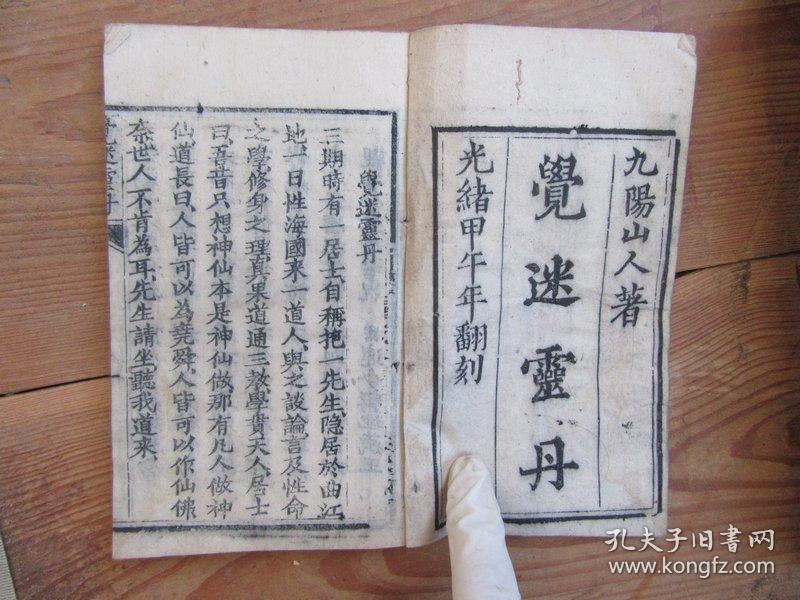 九陽山人著
覺迷靈丹
光緒甲午年翻刻
覺迷靈丹
三期時有一居士自稱抱一先生隐居於曲江
地一日性海國来一道人與之談論言及性命
之學修身之理真果道通三教學貴天人居士
曰吾昔只想神仙本是神仙做那有凡人做神
仙道長曰人皆可以為堯舜人皆可以作仙佛
奈世人不肯為耳先生請坐聽我道来
孔夫子旧書网
www.kongfz.com